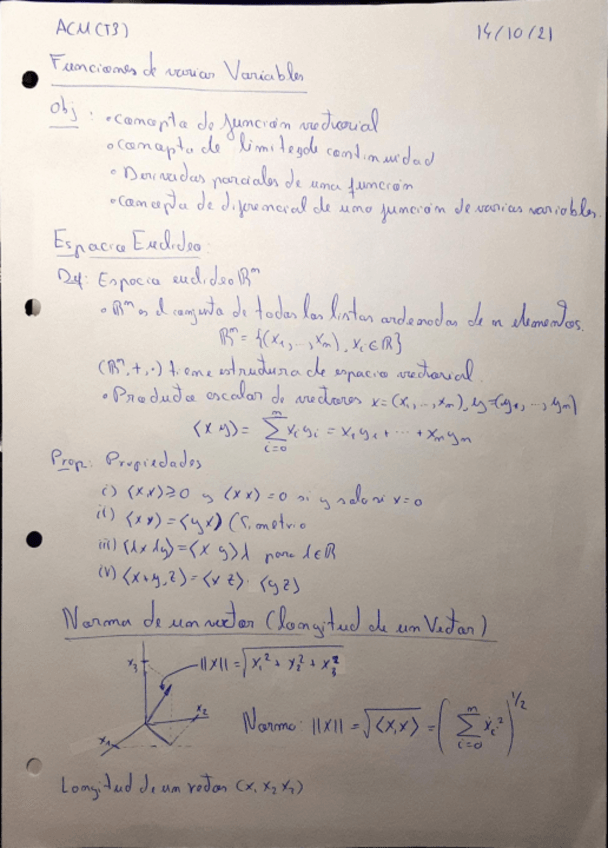 ACM(T3) 14/10/21
Funciones de varias Variables
Obj: • concepto de función vectorial
• concepto de limites de continuidad
• Derivadas parciales de una función
• concepto de diferencial de una función de varias variables.
Espacio Euclideo
Def: Espacio euclideo ℝⁿ
• ℝⁿ es el conjunto de todas las listas ordenadas de n elementos.
ℝⁿ = {(x₁, ..., xₙ), xᵢ ∈ ℝ}
(ℝⁿ, +, ·) tiene estructura de espacio vectorial
• Producto escalar de vectores x = (x₁, ..., xₙ), y = (y₁, ..., yₙ)
⟨x y⟩ = ∑ᵢ₌₀ⁿ xᵢyᵢ = x₁y₁ + ··· + xₙyₙ
Prop: Propiedades
i) ⟨x x⟩ ≥ 0 y ⟨x x⟩ = 0 si y solo si x = 0
ii) ⟨x y⟩ = ⟨y x⟩ (Simetrio
iii) ⟨λx λy⟩ = ⟨x y⟩λ para λ ∈ ℝ
iv) ⟨x+y, z⟩ = ⟨x z⟩ · ⟨y z⟩
Norma de un vector (longitud de un Vector)
x₃ ||x|| = √(x₁² + x₂² + x₃²)
x₂
x₁
Norma: ||x|| = √⟨x, x⟩ = (∑ᵢ₌₀ⁿ xᵢ²)^1/2
Longitud de un vector (x₁ x₂ x₃)